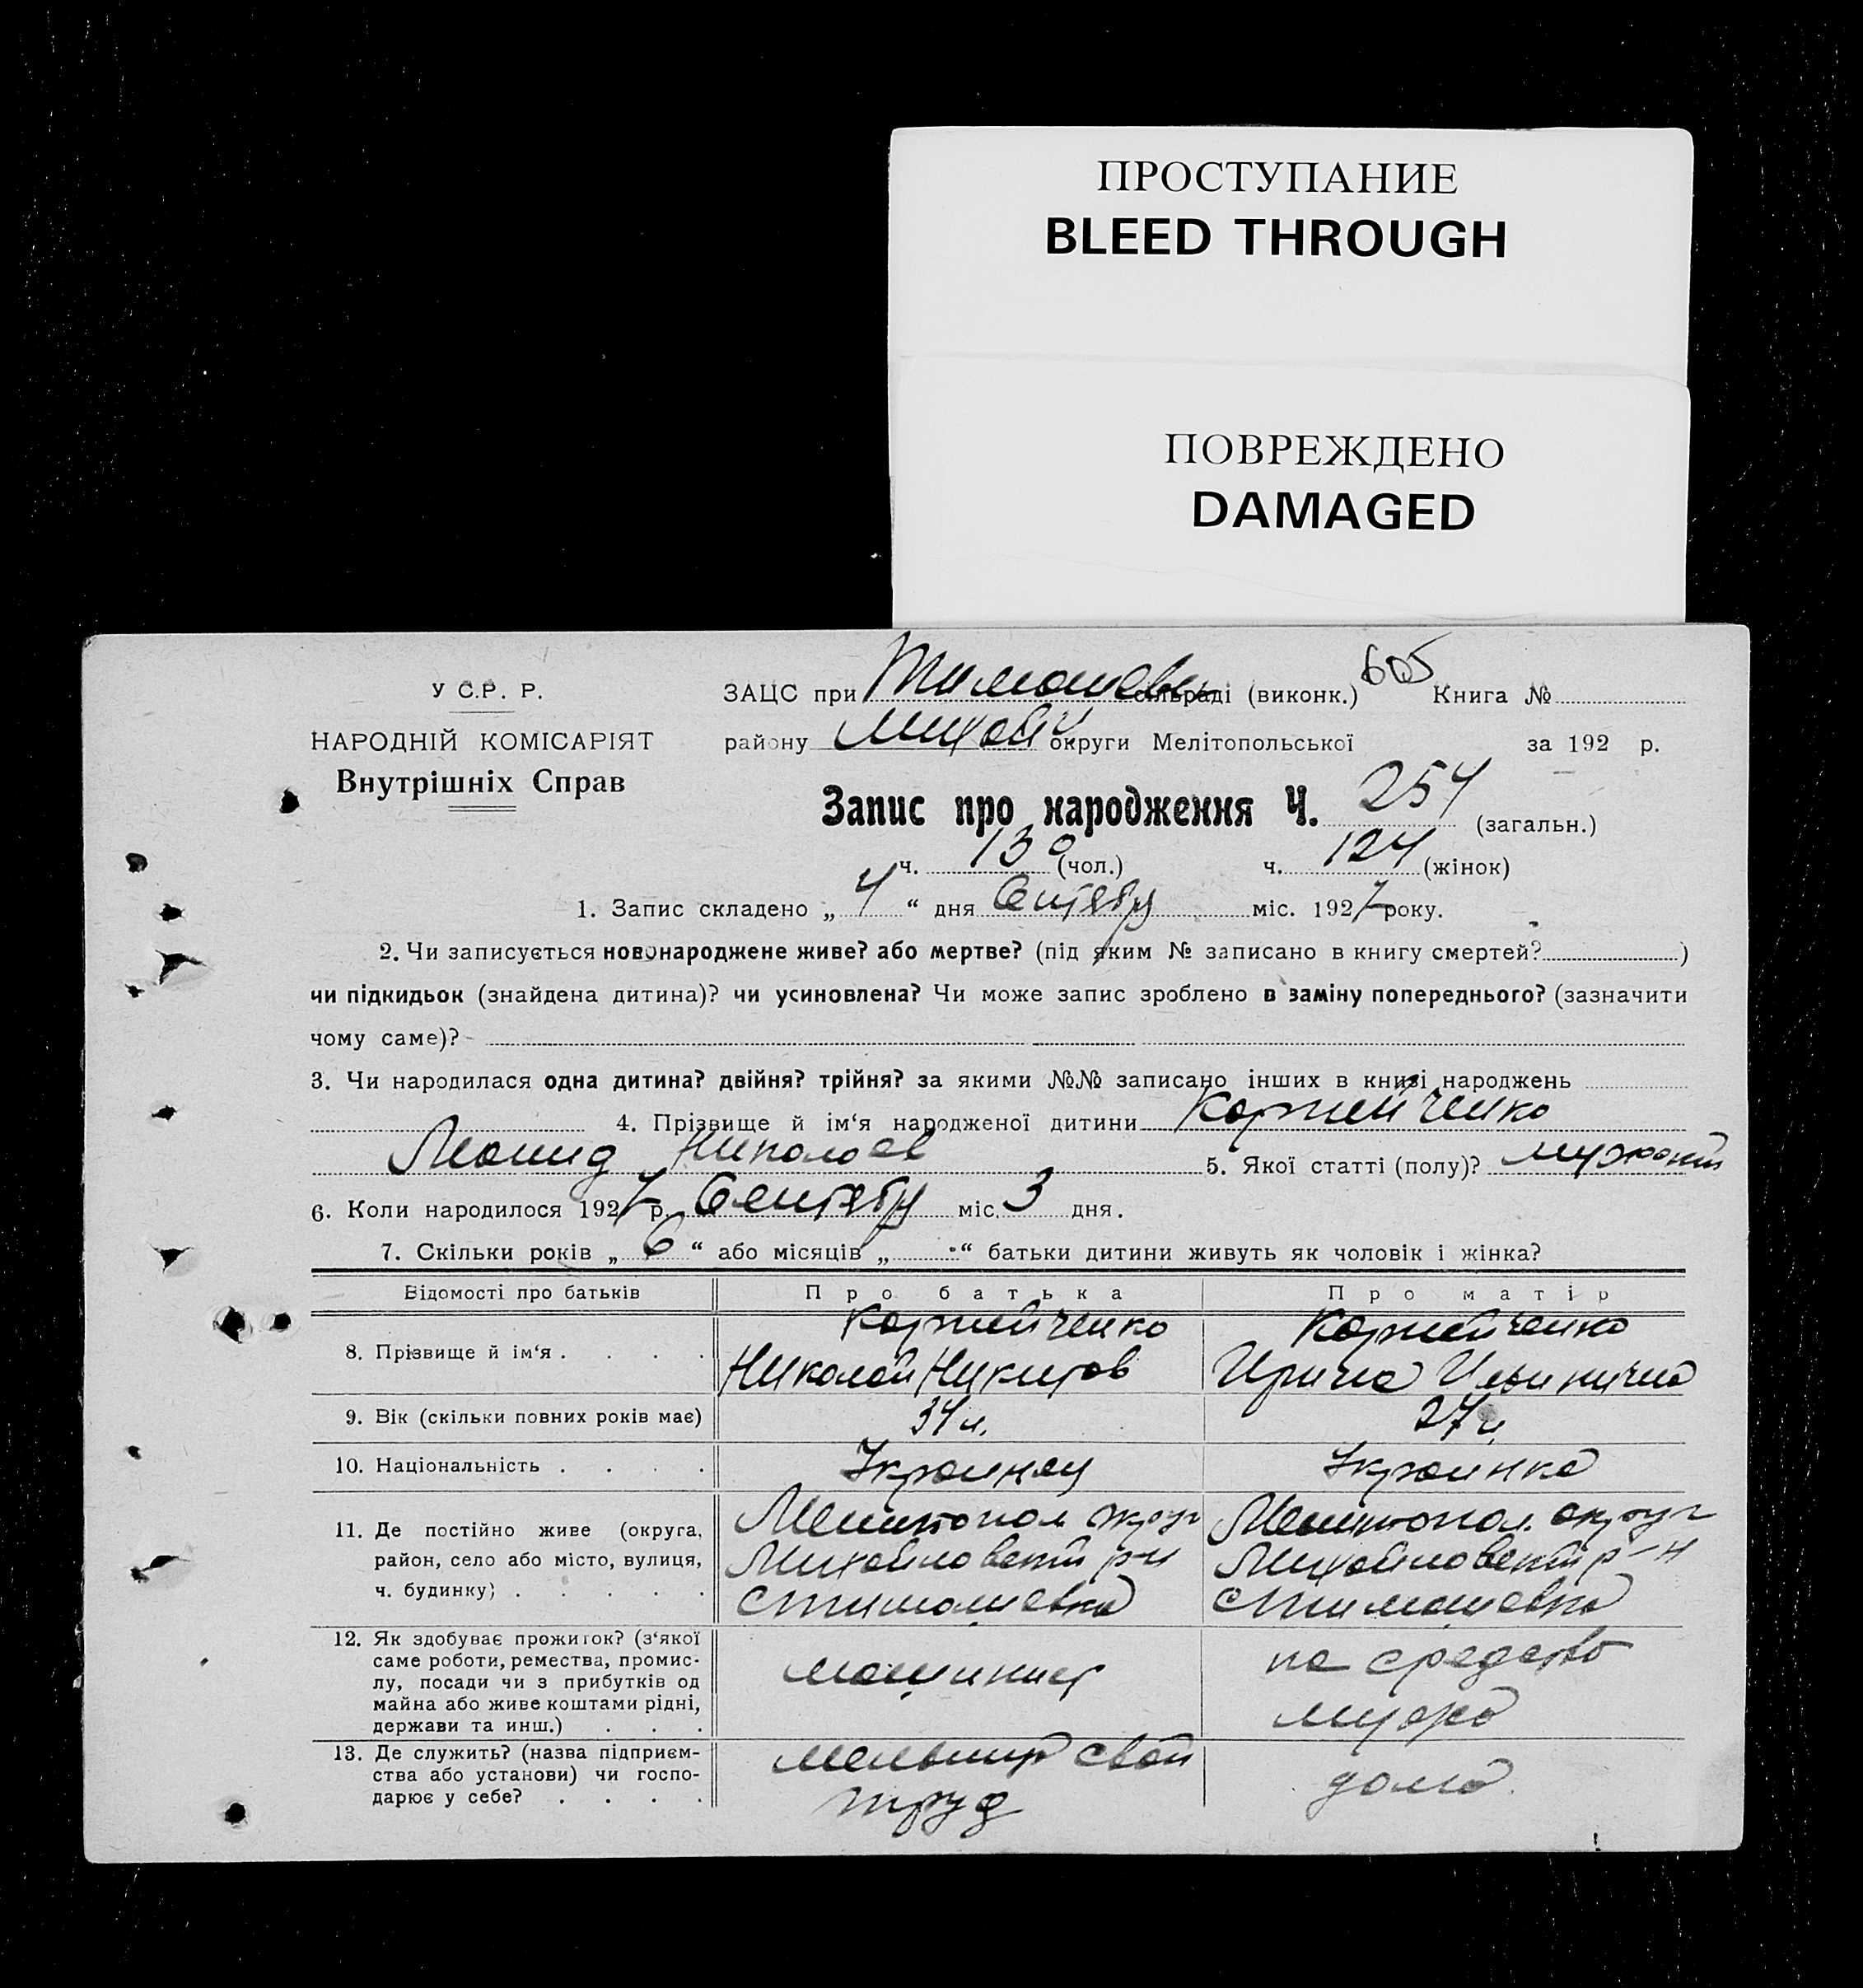 ПРОСТУПАНИЕ
BLEED THROUGH
ПОВРЕЖДЕНО
DAMAGED
605
У С.Р. Р. ЗАЦС при Тимошевк сільраді (виконк.) Книга №
НАРОДНІЙ КОМІСАРІЯТ району Михай округи Мелітопольської за 192 р.
Внутрішніх Справ
Запис про народження Ч. 254 (загальн.)
ч. 130 (чол.) ч. 124 (жінок)
1. Запис складено „ 4 “ дня Сентябр міс. 1927 року.
2. Чи записується новонароджене живе? або мертве? (під яким № записано в книгу смертей? )
чи підкидьок (знайдена дитина)? чи усиновлена? Чи може запис зроблено в заміну попереднього? (зазначити
чому саме)?
3. Чи народилася одна дитина? двійня? трійня? за якими №№ записано інших в книзі народжень
4. Прізвище й ім‘я народженої дитини Коржейченко
Леонид Николаев 5. Якої статті (полу)? мужск
6. Коли народилося 1927 р. Сентябр міс. 3 дня.
7. Скільки років „ 6 “ або місяців „ “ батьки дитини живуть як чоловік і жінка?
Відомості про батьків Про батька Про матір
8. Прізвище й ім‘я . . . . Коржейченко Коржейченко
Николай Никитов Ирина Ильинична
9. Вік (скільки повних років має) 34 л. 27 л.
10. Національність . . . . Украинец Украинка
11. Де постійно живе (округа, Мелитопол округ Мелитопол. округ
район, село або місто, вулиця, Михайловский р-н Михайловский р-н
ч. будинку) . . . . . с Тимошевка с Тимошевка
12. Як здобуває прожиток? (з‘якої
саме роботи, ремества, промис- машинист на средства
лу, посади чи з прибутків од
майна або живе коштами рідні, мужа
держави та инш.) . . .
13. Де служить? (назва підприєм- свой
ства або установи) чи госпо- дома
дарює у себе? . . . . труд